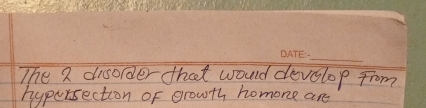 DATE:-
The 2 disorder that would develop from
hypersection of growth homone are